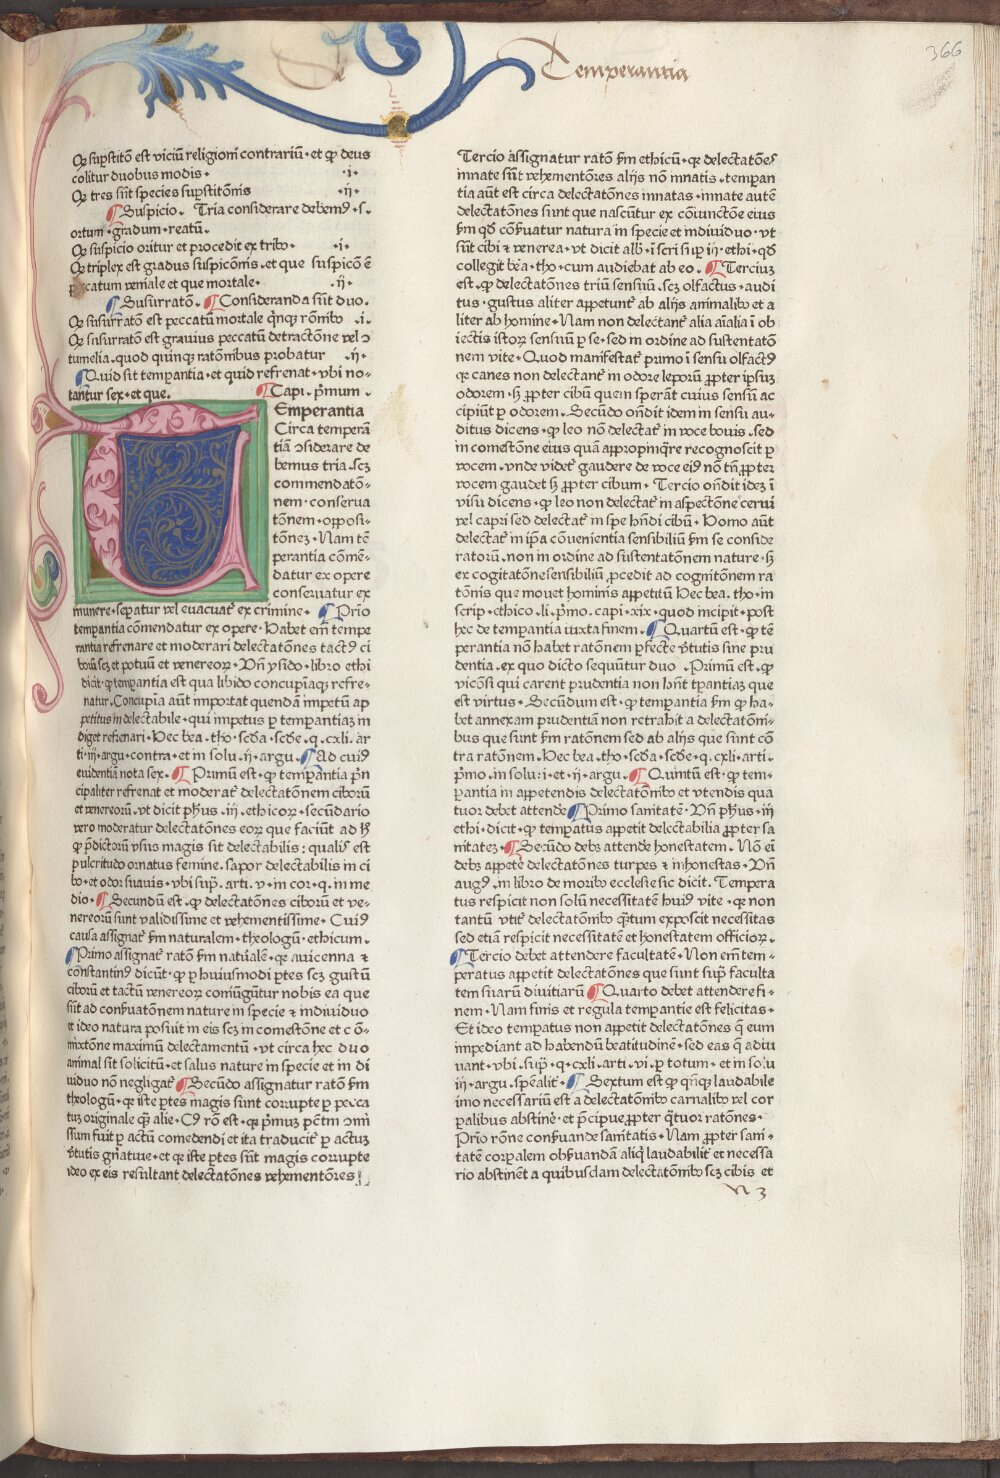 De Temperantia
366
Ꝙ suꝑstitõ est viciũ religioni contrariũ·et ꝙ deus
colitur duobus modis· ·i·
Ꝙ tres sũt species suꝑstitõnis ·ij·
¶Suspicio. Tria considerare debemꝰ·s.
ortum·gradum·reatũ.
Ꝙ suspicio oritur et procedit ex tribꝰ· ·i·
Ꝙ triplex est gradus suspicõnis.et que suspicõ ẽ
peccatum veniale et que mortale· ·ij·
¶Susurratõ. ¶Consideranda sũt duo.
Ꝙ susurratõ est peccatũ mortale q̃nqꝫ rõnibꝰ ·i.
Ꝙ susurratõ est grauius peccatũ detractõne vel ↄ
tumelia.quod quinqꝫ ratõnibus probatur ·ij·
¶Quid sit temꝑantia·et quid refrenat·vbi no-
tantur sex·et que. ¶Capi. p̃mum.
TEmperantia
Circa temperã
tiã ↄsiderare de
bemus tria.scꝫ
commendatõ-
nem·conserua
tõnem·opposi-
tõneꝫ·Nam tẽ
perantia cõmẽ-
datur ex opere
conseruatur ex
munere·seꝑatur vel euacuat᷑ ex crimine· ¶Prio
temꝑantia cõmendatur ex opere·Habet em̃ tempe
rantia refrenare et moderari delectatõnes tactꝰ ci
borũ scꝫ et potuũ et venereoꝝ·Vñ ysido·libro ethi
dicit·ꝙ temꝑantia est qua libido concupĩaqꝫ refre-
natur.Concupĩa aũt importat quendã impetũ ap
petitus in delectabile·qui impetus ꝑ temꝑantiaꝫ in
diget refrenari·Hec bea.tho·scďa·scďe.q.cxli.ar
ti·iij·argu·contra·et in solu.ij·argu.¶Ad cuiꝰ
euidentiã nota sex.¶Primũ est·ꝙ temꝑantia p̃n
cipaliter refrenat et moderat᷑ delectatõnem ciborũ
et venereorũ.vt dicit ph̃us .iij.ethicoꝝ·secũdario
vero moderatur delectatõnes eoꝝ que faciũt ad h̃
ꝙ p̃dictorũ vsus magis sit delectabilis:qualis est
pulcritudo ornatus femine.sapor delectabilis in ci
bo·et odor suauis·vbi suꝑ.arti.v·in cor·q.in me
dio·¶Secundũ est.ꝙ delectatõnes ciborũ et ve-
nereorũ sunt validissime et vehementissime·Cuiꝰ
causa assignat᷑ ẜm naturalem·theologũ·ethicum.
¶Primo assignat᷑ ratõ ẜm nat̃alẽ·qꝛ auicenna ⁊
constantinꝰ dicũt·ꝙ ꝑ huiusmodi ꝑtes scꝫ gustũ
ciborũ et tactũ venereoꝝ coniũgũtur nobis ea que
sũt ad conẜuatõnem nature in specie ⁊ indiuiduo
et ideo natura posuit in eis scꝫ in comestõne et cõ-
mixtõne maximũ delectamentũ·vt circa hec duo
animal sit solicitũ·et salus nature in specie et in di
uiduo nõ negligat᷑ ¶Secũdo assignatur ratõ ẜm
theologũ·qꝛ iste ꝑtes magis sunt corrupte ꝑ pecca
tuꝫ originale qꝫ alie·Cꝰ rõ est·qꝛ p̃muꝫ pctm̃ ↄmi
ssum fuit ꝑ actũ comedendi et ita traducit᷑ ꝑ actuꝫ
v̓tutis gñatiue·et qꝛ iste ꝑtes sũt magis corrupte
ideo ex eis resultant delectatõnes vehementores
Tercio assignatur ratõ ẜm ethicũ·qꝛ delectatões
innate sũt vehementõres alijs nõ innatis·temꝑan
tia aũt est circa delectatõnes innatas·innate autẽ
delectatõnes sunt que nascũtur ex cõiunctõne eius
ẜm qď conẜuatur natura in specie et indiuiduo·vt
sũt cibi ⁊ venerea·vt dicit alb̓·ĩ scri suꝑ iij·ethi·qď
collegit be̓a·tho·cum audiebat ab eo.¶Terciuꝫ
est·ꝙ delectatõnes triũ sensuũ.scꝫ olfactus·audi
tus·gustus aliter appetunt᷑ ab alijs animalibꝰ et a
liter ab homine·Nam non delectant᷑ alia aĩalia ĩ ob
iectis istoꝝ sensuũ ꝑ se·sed in ordine ad sustentatõ
nem vite·Quod manifestat᷑ primo ĩ sensu olfactꝰ
qꝛ canes non delectant᷑ in odore leporũ ꝓpter ipsuꝫ
odorem·sꝫ ꝓpter cibũ quem sperãt cuius sensũ ac
cipiũt ꝑ odorem.Secũdo oñdit idem in sensu au-
ditus dicens·ꝙ leo nõ delectat᷑ in voce bouis.sed
in comestõne eius quã appropinq̃re recognoscit ꝑ
vocem.vnde videt᷑ gaudere de voce eiꝰ nõ tñ ꝓpter
vocem gaudet sꝫ ꝓpter cibum·Tercio oñdit ideꝫ ĩ
visu dicens·ꝙ leo non delectat᷑ in aspectõne cerui
vel capri sed delectat᷑ in spe hñdi cibũ·Homo aũt
delectat᷑ in ip̃a cõuenientia sensibiliũ ẜm se conside
ratorũ.non in ordine ad sustentatõnem nature·sꝫ
ex cogitatõne sensibiliũ ꝓcedit ad cognitõnem ra
tõnis que mouet hominis appetitũ Hec bea.tho·in
scrip·ethico.li.p̃mo.capi·xix·quod incipit·post
hec de temꝑantia iuxta finem.¶Quartũ est·ꝙ tẽ
perantia nõ habet ratõnem ꝑfecte v̓tutis sine pru
dentia.ex quo dicto sequũtur duo Primũ est.ꝙ
viciosi qui carent prudentia non hñt tꝑantiaꝫ que
est virtus·Secũdum est·ꝙ temꝑantia ẜm ꝙ ha-
bet annexam prudentiã non retrahit a delectatõni-
bus que sunt ẜm ratõnem sed ab alijs que sunt cõ
tra ratõnem.Hec bea.tho·scďa·scďe·q.cxli·arti.
p̃mo.in solu:i·et·ij·argu.¶Quintũ est·ꝙ tem-
ꝑantia in appetendis delectatõnibꝰ et vtendis qua
tuor debet attende ¶Primo sanitatẽ·Vñ ph̃us·iij
ethi·dicit·ꝙ temꝑatus appetit delectabilia ꝓpter sa
nitateꝫ·¶Secũdo debꝫ attende honestatem.Nõ ei̓
debꝫ appete̓ delectatõnes turpes ⁊ inhonestas·Vñ
augꝰ.in libro de moribꝰ ecclesie sic dicit.Tempera
tus respicit non solũ necessitatẽ huiꝰ vite·qꝛ non
tantũ vtit᷑ delectatõnibꝰ q̃tum exposcit necessitas
sed etiã respicit necessitatẽ et honestatem officioꝝ.
¶Tercio debet attendere facultatẽ·Non em̃ tem-
peratus appetit delectatõnes que sunt sup̃ faculta
tem suarũ diuitiarũ ¶Quarto debet attendere fi-
nem·Nam finis et regula temꝑantie est felicitas·
Et ideo temꝑatus non appetit delectatõnes q̃ eum
impediant ad habendũ beatitudinẽ·sed eas q̃ adiu
uant·vbi.sup̃·q·cxli·arti·vi.ꝑ totum·et in solu
iij·argu.sꝑealit̓·¶Sextum est ꝙ qñqꝫ laudabile
imo necessariũ est a delectatõnibꝰ carnalibꝰ vel cor
ꝑalibus abstine̓·et p̃cipue ꝓpter q̃tuor ratõnes·
Prio rõne conẜuande sanitatis·Nam ꝓpter sani-
tatẽ corꝑalem obẜuandã aliq̃ laudabilit᷑ et necessa
rio abstinẽt a quibusdam delectatõnibꝰ scꝫ cibis et
n 3